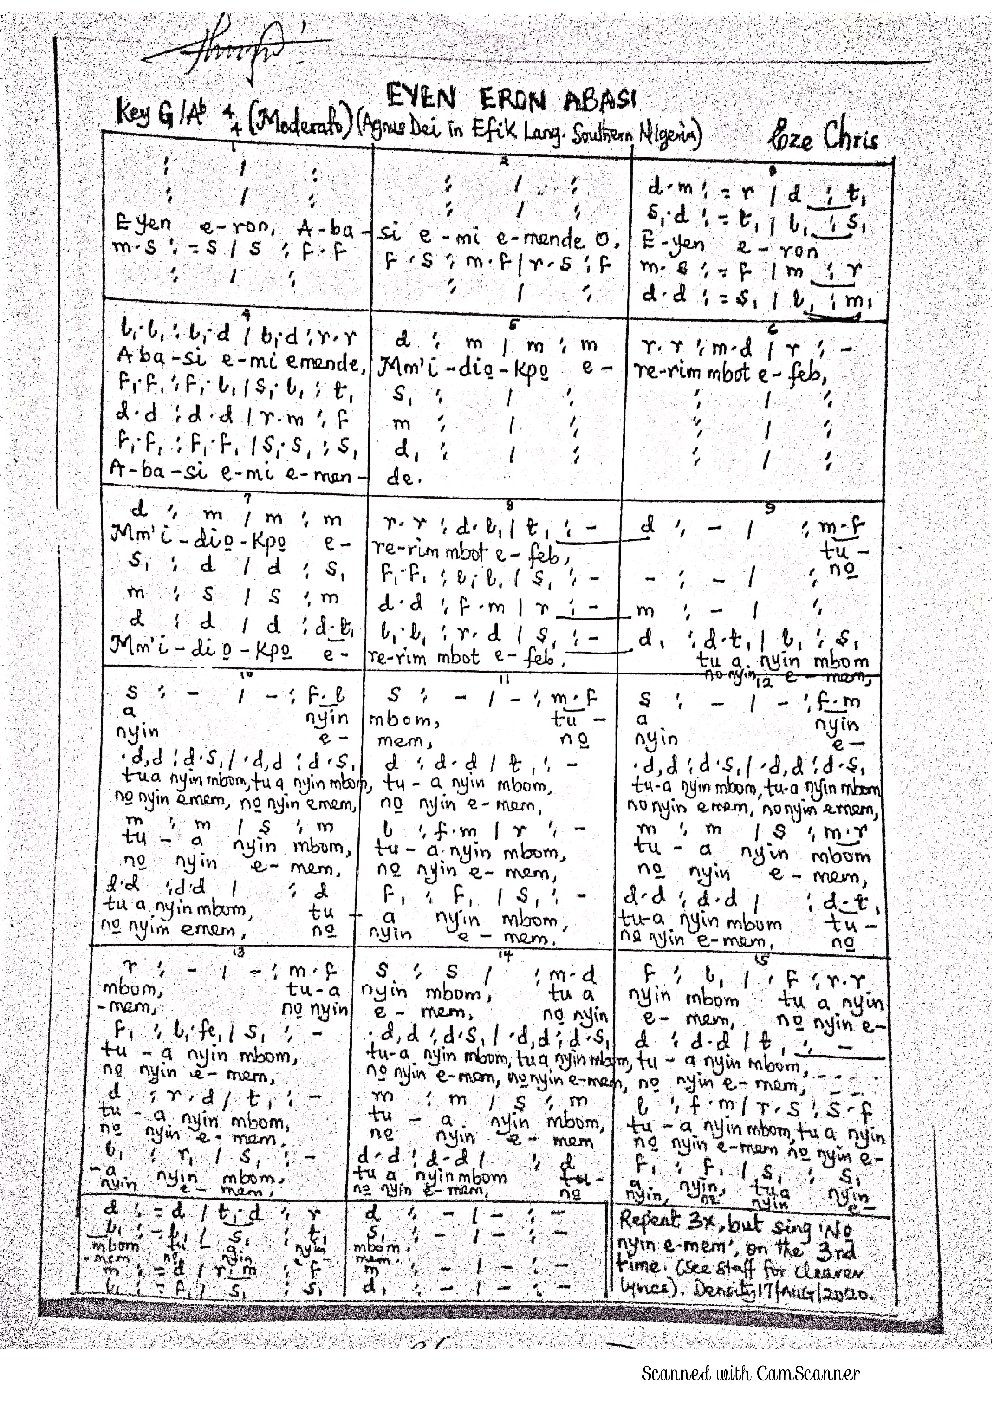 EYEN ERON ABASI
Key G/Ab 4/4 (Moderato) (Agnus Dei in Efik Lang. Southern Nigeria) Eze Chris
1
: / :
: / :
E yen e-ron, A-ba-
m.s : = s / s : f.f
: / :
2
: / :
: / :
si e-mi e-mende O,
f.s : m.f / r.s : f
: / :
3
d.m : = r / d : t,
s,.d : = t, / l, : s,
E-yen e-ron
m.s : = f / m : r
d.d : = s, / l, : m,
4
l,.l, : l,.d / l,.d : r.r
Aba-si e-mi emende,
f,.f, : f,.l, / s,.l, : t,
d.d : d.d / r.m : f
f,.f, : f,.f, / s,.s, : s,
A-ba-si e-mi e-men-
5
d : m / m : m
Mm'i-dio-kpo e-
s, : / :
m : / :
d, : / :
de.
6
r.r : m.d / r : -
re-rim mbot e-feb,
: / :
: / :
: / :
7
d : m / m : m
Mm'i-dio-kpo e-
s, : d / d : s,
m : s / s : m
d : d / d : d.t,
Mm'i-dio-kpo e-
8
r.r : d.l, / t, : -
re-rim mbot e-feb,
f,.f, : l,.l, / s, : -
d.d : f.m / r : -
l,.l, : r.d / s, : -
re-rim mbot e-feb,
9
d : - / : m.f
tu-
no
- : - / :
m : - / :
d, : d.t, / l, : s,
tu a nyin mbom
no nyin e-mem,
10
s : - / - : f.l
a nyin
nyin e-
.d,d : d.s, / .d,d : d.s,
tua nyin mbom, tu a nyin mbom,
no nyin emem, no nyin emem,
m : m / s : m
tu - a nyin mbom,
no nyin e-mem,
d.d : d.d / : d
tu a nyin mbom, tu
no nyin emem, no
11
s : - / - : m.f
mbom, tu-
mem, no
d : d.d / t, : -
tu-a nyin mbom,
no nyin e-mem,
l : f.m / r : -
tu-a nyin mbom,
no nyin e-mem,
f, : f, / s, : -
a nyin mbom,
nyin e-mem,
12
s : - / - : f.m
a nyin
nyin e-
.d,d : d.s, / .d,d : d.s,
tu-a nyin mbom, tu-a nyin mbom
no nyin emem, no nyin emem,
m : m / s : m.r
tu - a nyin mbom
no nyin e-mem,
d.d : d.d / : d.t,
tu-a nyin mbom tu-
no nyin e-mem, no
13
r : - / - : m.f
mbom, tu-a
-mem, no nyin
f, : l,.fe, / s, : -
tu-a nyin mbom,
no nyin e-mem,
d : r.d / t, : -
tu-a nyin mbom,
no nyin e-mem,
l, : r, / s, : -
-a nyin mbom,
e-mem,
14
s : s / : m.d
nyin mbom, tu a
e-mem, no nyin
.d,d : d.s, / .d,d : d.s,
tu-a nyin mbom, tua nyin mbom,
no nyin e-mem, no nyin e-mem,
m : m / s : m
tu - a nyin mbom,
no nyin e-mem
d.d : d.d / : d
tu a nyin mbom tu-
no nyin e-mem, no
15
f : l, / f : r.r
nyin mbom tu a nyin
e-mem, no nyin e-
d : d.d / t, : -
tu-a nyin mbom,
no nyin e-mem,
l : f.m / r.s : s.f
tu-a nyin mbom, tu a nyin
no nyin e-mem no nyin e-
f, : f, / s, : s,
a nyin, tua nyin
nyin, no nyin e-
d : = d / t,.d : r
mbom
-mem
m : = d / r.m : f
d : - / - : -
s, : - / - : -
mbom.
mem.
m : - / - : -
d, : - / - : -
Repeat 3x, but sing 'No
nyin e-mem', on the 3rd
time. (See staff for clearer
lyrics). Density 17/AUG/2020.
Scanned with CamScanner